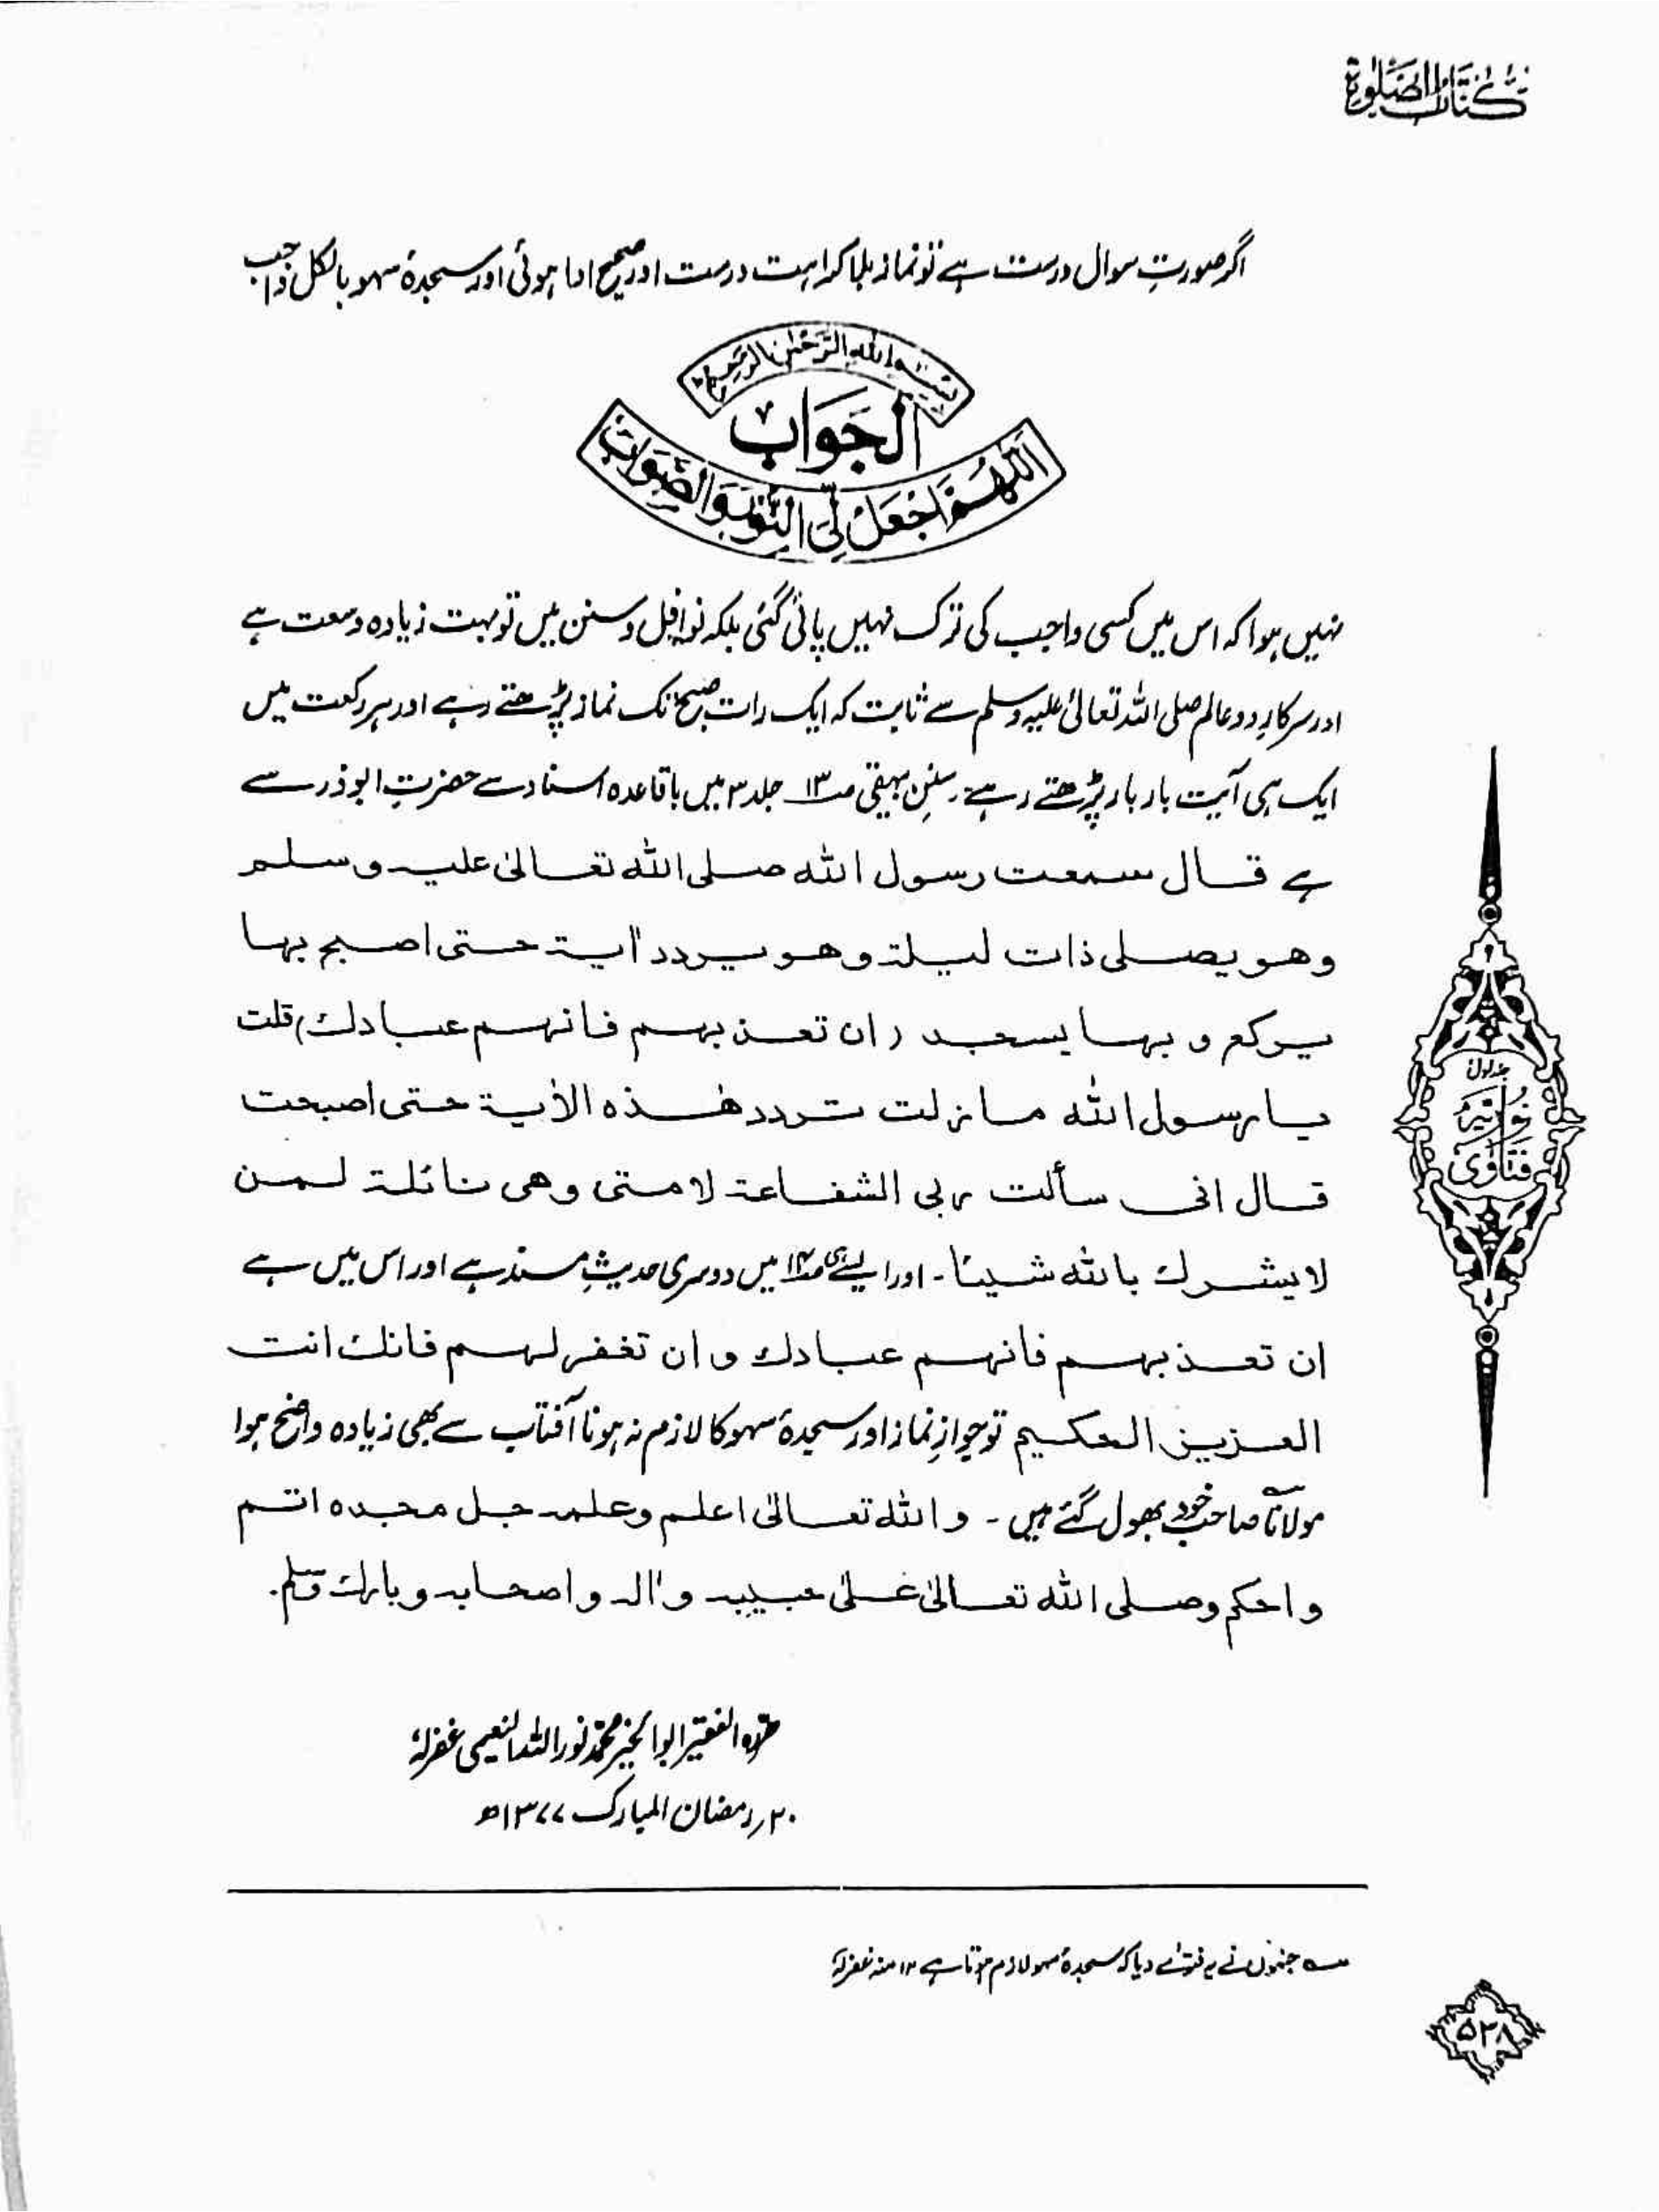 كتاب الصلوة
اگر صورتِ سوال درست ہے تو نماز بلا کراہت درست اور صحیح ادا ہوئی اور سجدۂ سہو بالکل واجب
بسم الله الرحمن الرحيم
الجواب
اللهم اجعل لي النور والصواب
نہیں ہوا کہ اس میں کسی واجب کی ترک نہیں پائی گئی بلکہ نوافل و سنن میں تو بہت زیادہ وسعت ہے
اور سرکارِ دو عالم صلی اللہ تعالیٰ علیہ وسلم سے ثابت کہ ایک رات صبح تک نماز پڑھتے رہے اور ہر رکعت میں
ایک ہی آیت بار بار پڑھتے رہے۔ سننِ بیہقی ص۱۳ جلد ۳ میں باقاعدہ اسناد سے حضرتِ ابوذر سے
ہے قال سمعت رسول الله صلى الله تعالىٰ عليه وسلم
وهو يصلى ذات ليلة وهو يردد اٰية حتى اصبح بها
يركع و بها يسجد (ان تعذبهم فانهم عبادك) قلت
يا رسول الله ما زلت تردد هٰذه الاٰية حتى اصبحت
قال انى سألت ربى الشفاعة لامتى وهى نائلة لمن
لا يشرك بالله شيئا۔ اور ایسے ہی ص۱۴ میں دوسری حدیثِ مسند ہے اور اس میں ہے
ان تعذبهم فانهم عبادك و ان تغفر لهم فانك انت
العزيز الحكيم تو جوازِ نماز اور سجدۂ سہو کا لازم نہ ہونا آفتاب سے بھی زیادہ واضح ہوا
مولانا صاحب خود بھول گئے ہیں۔ و الله تعالىٰ اعلم وعلمه جل مجده اتم
و احكم وصلى الله تعالىٰ علىٰ حبيبه و اٰله و اصحابه و بارك وسلم۔
حررہ الفقیر ابوالخیر محمد نور اللہ النعیمی غفرلہٗ
۲۰؍ رمضان المبارک ۱۳۷۷ھ
جنہوں نے یہ فتویٰ دیا کہ سجدۂ سہو لازم ہوتا ہے ۱۲ منہ غفرلہٗ
جلد اول
نوریہ
فتاویٰ
۵۲۸